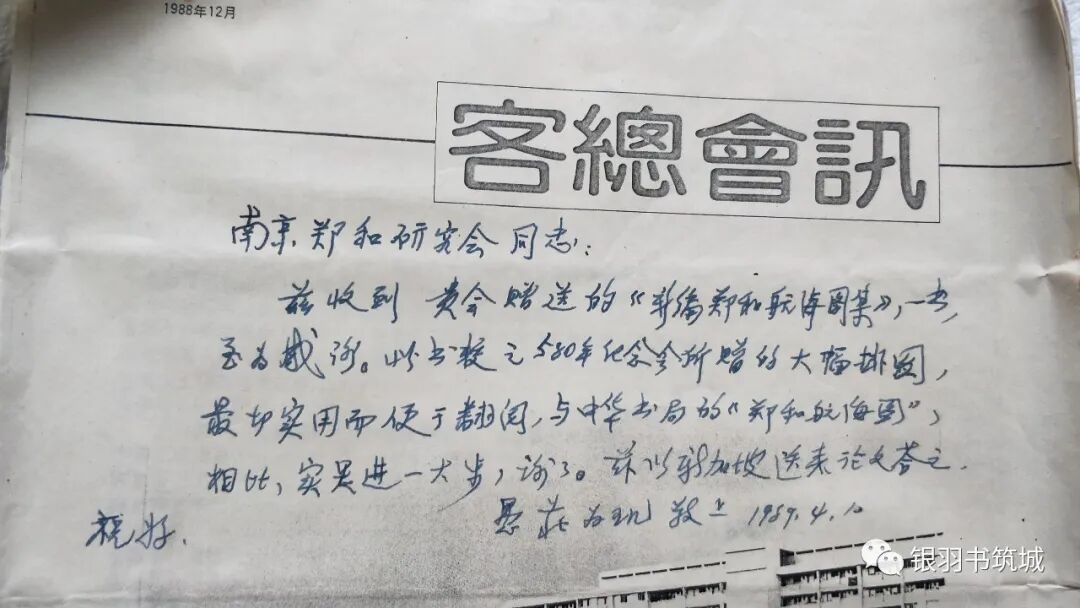 1988年12月
客總會訊
南京郑和研究会同志:
兹收到 贵会赠送的《新编郑和航海图集》,一书,
至为感谢。此书较之580年纪念会所赠的大幅挂图,
最切实用而便于翻阅,与中华书局的“郑和航海图”,
相比,实是进一大步,谢了。兹以新加坡送来论文答之.
庄为玑 敬上 1989.4.10
祝好.
银羽书筑城